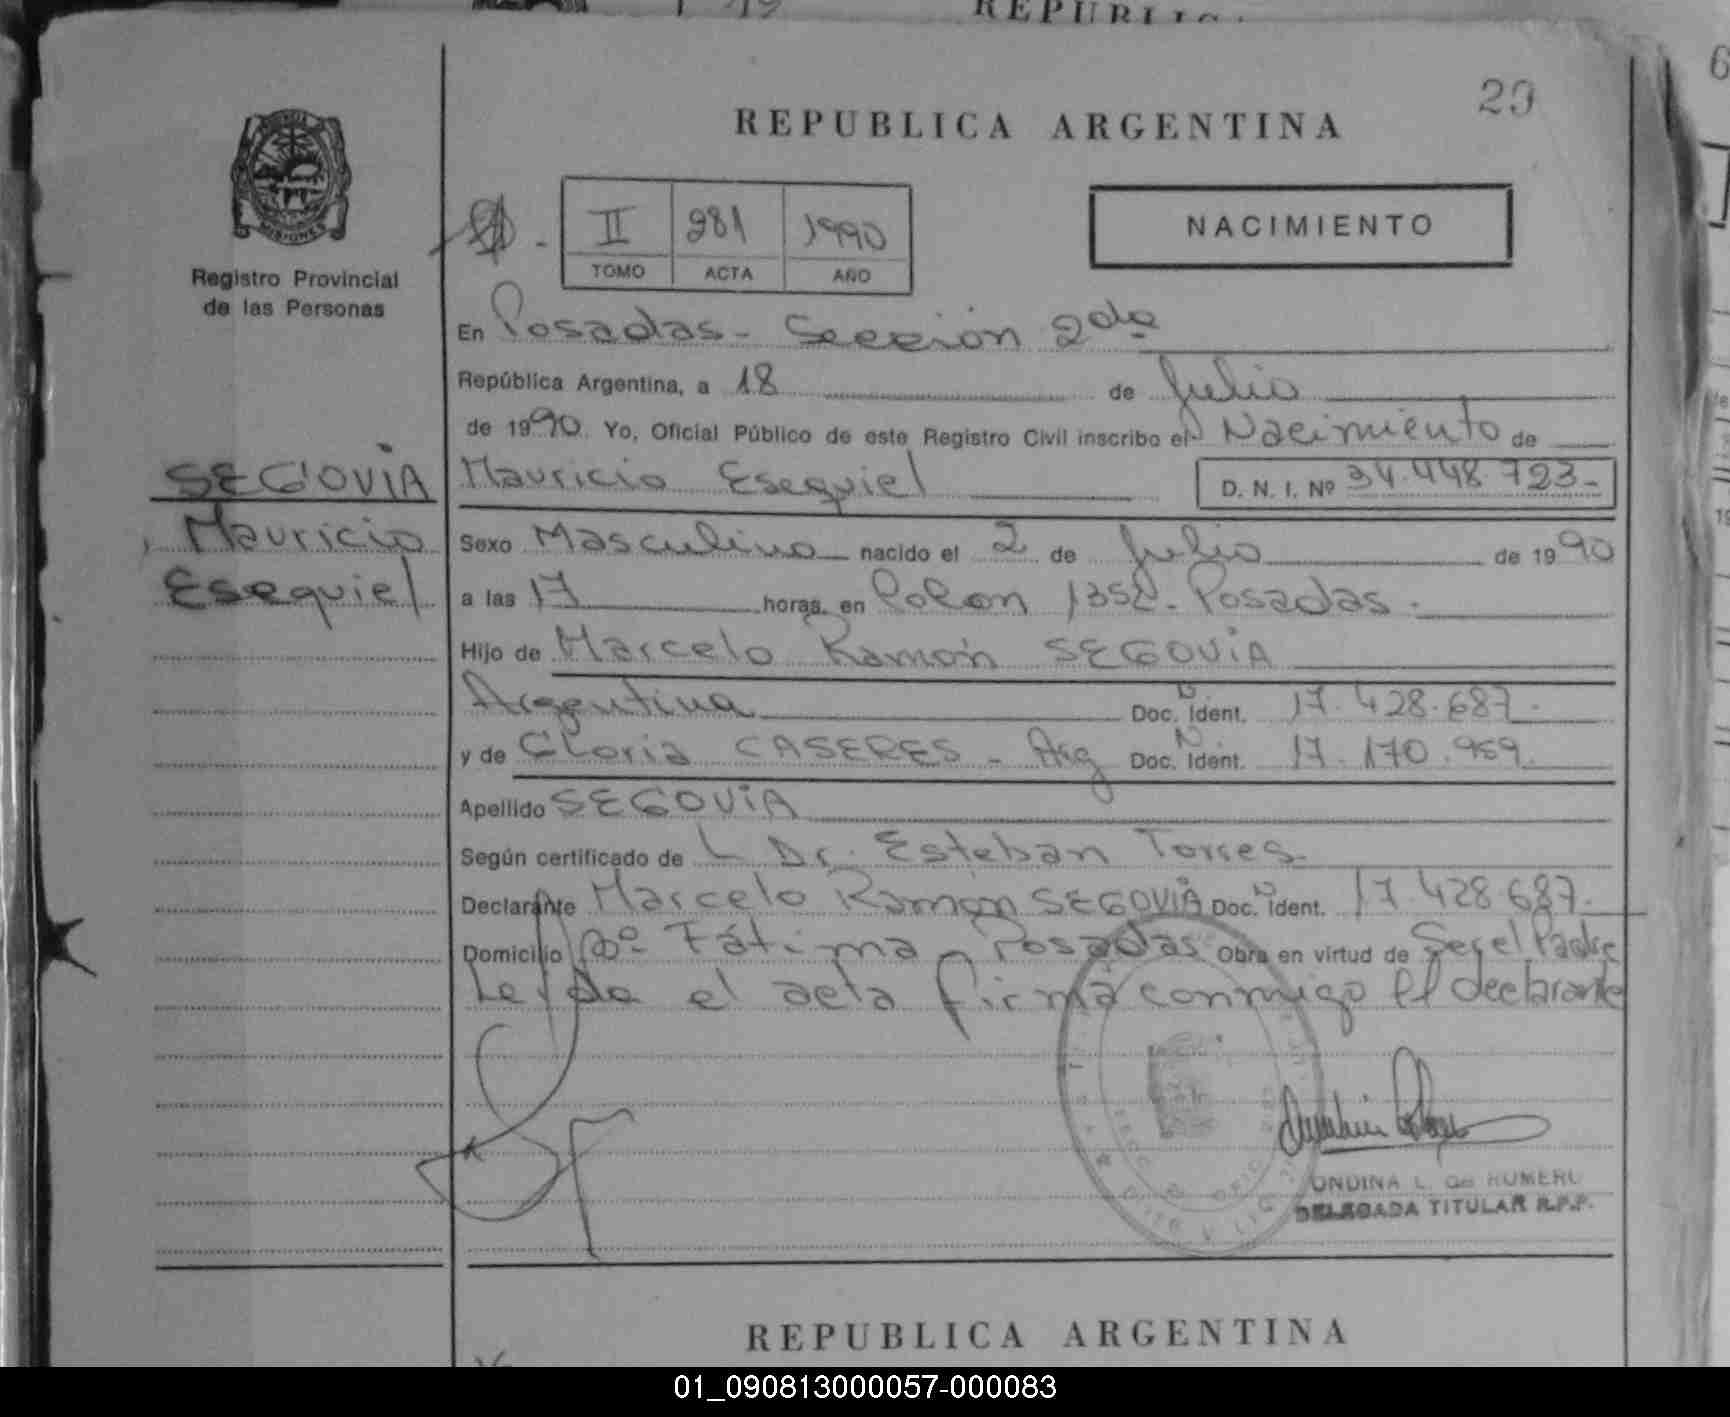 29
REPUBLICA ARGENTINA
PROVINCIA
MISIONES
Registro Provincial
de las Personas
II 281 1990
TOMO ACTA AÑO
NACIMIENTO
En Posadas - Sección 2da
República Argentina, a 18 de Julio
de 1990. Yo, Oficial Público de este Registro Civil inscribo el Nacimiento de
SEGOVIA
Mauricio
Esequiel
Mauricio Esequiel D. N. I. Nº 34.448.723-
Sexo Masculino nacido el 2 de Julio de 1990
a las 17 horas, en Colon 1352 - Posadas.
Hijo de Marcelo Ramón SEGOVIA
Argentina Doc. Ident. 17.428.687.
y de Gloria CASERES - Arg Doc. Ident. 17.170.959.
Apellido SEGOVIA
Según certificado de L Dr. Esteban Torres
Declarante Marcelo Ramón SEGOVIA Doc. Ident. 17.428.687.
Domicilio Bº Fátima - Posadas Obra en virtud de Ser el Padre
Leída el acta firma conmigo el declarante
ONDINA L. de ROMERO
DELEGADA TITULAR R.P.P.
REPUBLICA ARGENTINA
01_090813000057-000083